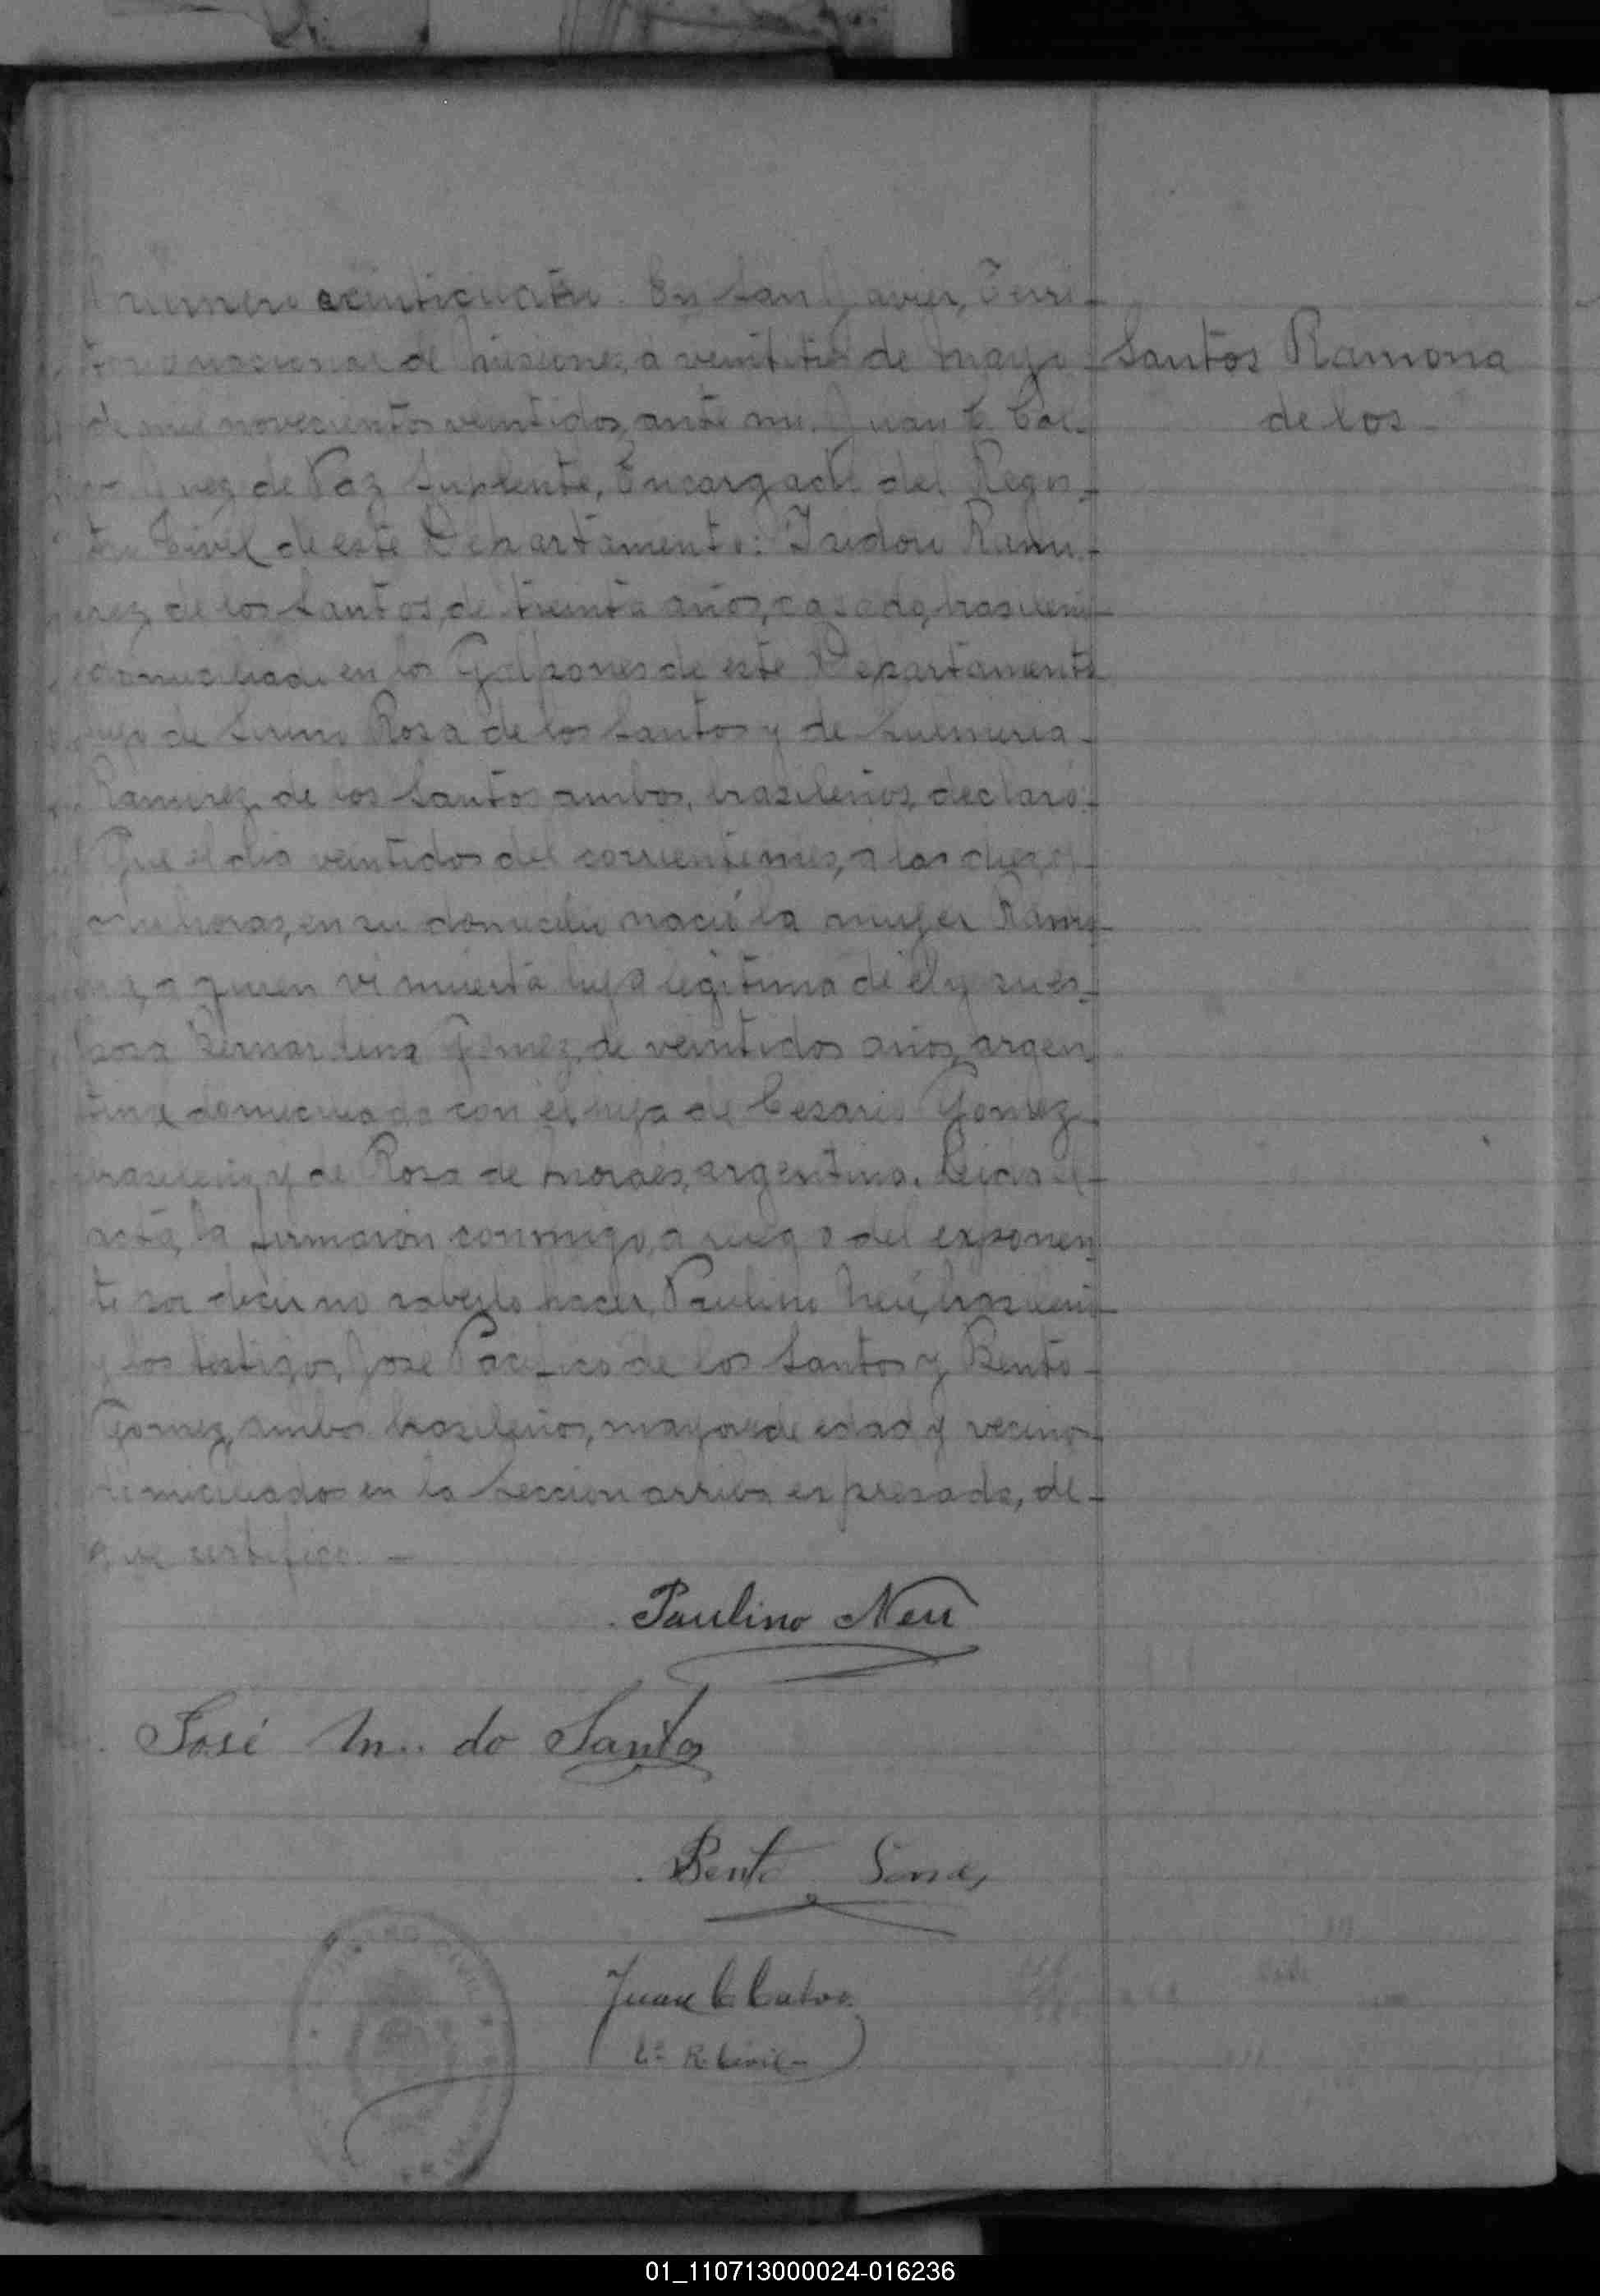 numero veinticuatro. En San Javier, Terri-
torio nacional de Misiones, a veintitres de Mayo
Santos Ramona
de los
de mil novecientos veintidos, ante mi, Juan C.
Juez de Paz Suplente, Encargado del Regis-
tro Civil de este Departamento: Isidoro Rami-
rez de los Santos, de treinta años, casado, brasileño
domiciliado en los Galpones de este Departamento
hijo de Rosa de los Santos y de
Ramirez de los Santos ambos, brasileños, declaró:
Que el dia veintidos del corriente mes, a las
horas, en su domicilio nació la mujer Ramo-
na, a quien vi muerta hija legitima de él y su es-
posa Bernardina Gomez, de veintidos años, argen
tina domiciliada con él, hija de Cesario Gomez
brasileño y de Rosa de Moraes, argentina. Leida el
acta, la firmaron conmigo, a ruego del exponen
te por decir no saberlo hacer, Paulino Neu, brasileño
y los testigos, José Pacifico de los Santos y Bento
Gomez, ambos brasileños, mayores de edad y vecinos
domiciliados en la Seccion arriba expresada, de
que certifico. -
Paulino Neu
José M. do Santos
Bento
Juan C.
R. Civil
01_110713000024-016236